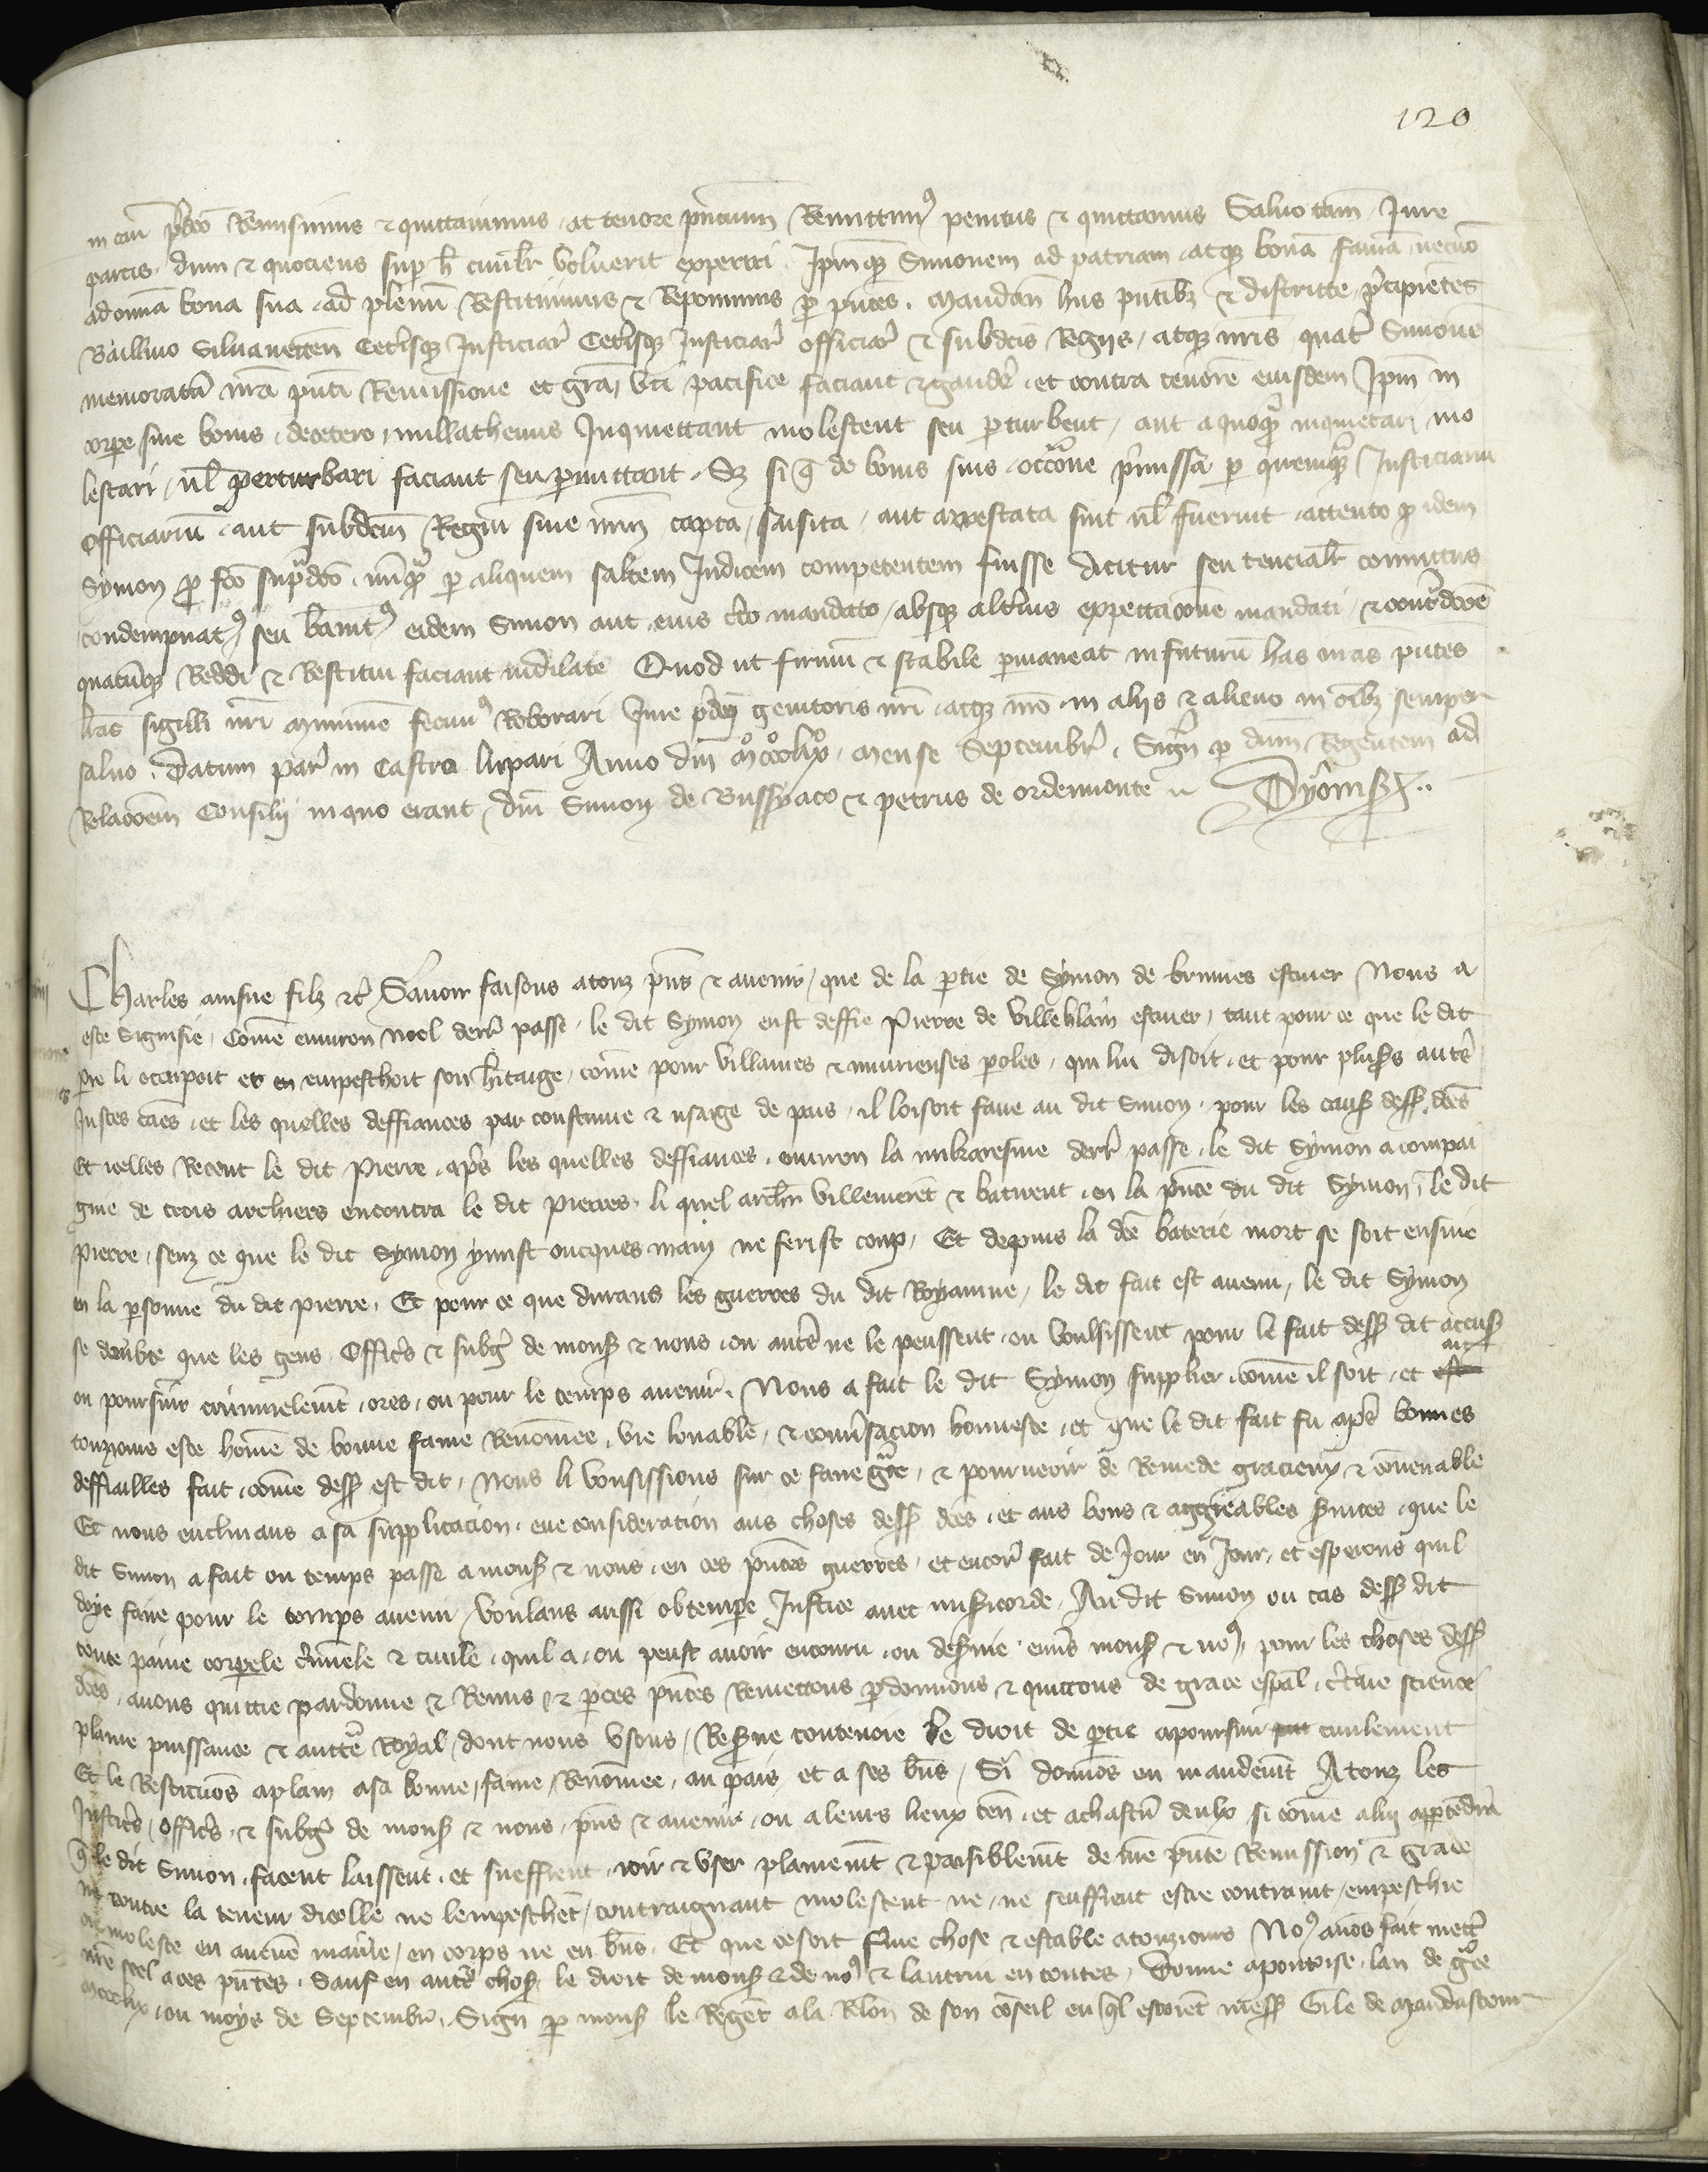 120
in casu p̄dc̄o Remisimus ⁊ quittavimus ac tenore pn̄cium Remittim⁹ penitus ⁊ quittamus Salvo tam̄ Jure
partis dum ⁊ quociens sup̱ h̄ civilr̄ voluerit experiri Ip̄mq̨ Simonem ad patriam atq̨ bonā famā necnō
ad omīa bona sua ad plenū Restituimus ⁊ Reponimus p̱ pn̄tes mandan̄ hiis pn̄tibȝ ⁊ districte p̄cipiētes
Baillivo Silvaneten̄ Cet̄isq̨ Justiciar̄ Cet̄isq̨ Justiciar̄ officiar̄ ⁊ subdc̄is Regiis atq̨ nr̄is quat̄ Simonē
memoratū nr̄a pn̄ti Remissione et gr̄a uti pacifice faciant ⁊ gaudēr et contra tenorē eiusdem Ip̄m in
corpe sive bonis decetero nullathenus Inquiettant molestent seu p̱turbent aut a quoq̨ inquietari mo
lestari vl̄ perturbari faciant seu p̱mittant Sȝ si q̄ de bonis suis occōne p̄missa p̱ quemq̨ Justiciariū
officiariū aut subdc̄m Regiū sive nr̄m capta saisita aut arrestata sint vl̄ fuerint attento q̨ idem
Symon p̱ fc̄o sup̄dc̄o nūq̨ p̱ aliquem saltem Judicem competentem fuisse dicitur seu tencialr̄ convictus
condempnat⁹ seu bānit⁹ eidem Simon aut eius c̄to mandato absq̨ alt̄ius expectacione mandati ⁊ cont̄dcōe
quacūq̨ Reddi ⁊ Restitui faciant indilate Quod ut firmū ⁊ stabile p̱maneat in futurū has nr̄as pn̄tes
lr̄as sigilli nr̄i munimīe fecim⁹ Roborari Jure p̄dc̄i genitoris nr̄i atq̨ nr̄o in aliis ⁊ alieno in oībȝ semper
salvo Datum par̄ in Castro lupari Anno dn̄i mº cccº lixº mense Septembr̄ Sign̄ p̱ dn̄m Regentem ad
Relacōem Consilii in quo erant dn̄i Simon de Bussyaco ⁊ petrus de ordeimonte Dyonis̱
Charles ainsne filz ⁊c̄ Savoir faisons a touz pn̄s ⁊ avenir que de la p̱tie de Symon de brunnes escuier Nous a
este Signifie Com̄e environ noel derr̄ passe le dit Symon eust deffie Pierre de Villeblain escuier tant pour ce que le dit
prē li occupoit et en empeschoit son h̄itaige com̄e pour villaines ⁊ iniurieuses p̱oles qui lui disoit et pour plus̱s autr̄s
Justes caēs et les quelles deffiances par coustume ⁊ usaige de pais il loisoit faire au dit Simon pour les caus̱ dess̱ dc̄es
Et icelles Receut le dit Pierre ap̄s les quelles deffiances environ la mikaresme derr̄ passe le dit Symon acompai
gnie de trois archiers encontra le dit pierres li quel arch̄r villenerēt ⁊ batirent en la pn̄ce du dit Symon le dit
pierre senz ce que le dit Symon ymist oncques main ne ferist coup Et depuis la dc̄e baterie mort se soit ensuie
en la p̱sonne du dit pierre Et pour ce que durans les guerres du dit Royaume le dit fait est avenu le dit Symon
se doubte que les gens offic̄rs ⁊ subḡ de mons̱ ⁊ nous ou autr̄s ne le peussent ou voulsissent pour le fait dess̱ dit accus̱
ou poursuir criminelemt̄ ores ou pour le temps avenir Nous a fait le dit Symon supplier com̄e il soit et ait
touzjours este hom̄e de bonne fame Renom̄ee vie louable ⁊ conv̄sacion honneste et que le dit fait fu ap̄s bonnes
deffiailles fait com̄e dess̱ est dit Nous li vousissions sur ce faire gr̄ce ⁊ pourveoir de Remede gracieux ⁊ cōvenable
Et nous enclinans a sa supplicacion eue consideracion aus choses dess̱ dc̄es et aus bons ⁊ aggreables s̱vices que le
dit Simon a fait ou temps passe a mons̱ ⁊ nous en ces pn̄tes guerres et encor̄ fait de Jour en Jour et esperons quil
doye faire pour le temps avenir voulans aussi obtempe Justice avec mis̱icorde Au dit Simon ou cas dess̱ dit
toute paine corpele c̄imīele ⁊ civile quil a ou peust avoir encouru ou des̱vie envs̄ mons̱ ⁊ no⁹ pour les choses dess̱
dc̄es avons quictie pardonne ⁊ Remis ⁊ p̱ ces pn̄tes Remettons p̱donnons ⁊ quictons de grace esp̄al c̄taine science
plaine puissance ⁊ auctē Royal dont nous usons Res̱ve toutevoie le droit de p̱tie a poursuir civilement
Et le Restituōs a plain a sa bonne fame Renom̄ee au pais et a ses bn̄s Si donnōs en mandemt̄ A touz les
Justic̄rs offic̄rs ⁊ subḡ de mons̱ ⁊ nous pn̄s ⁊ avenir ou a leurs lieux ten̄ et a chascū deulx si com̄e a lui app̱tēdra
q̄ le dit Simon facent laissent et sueffrent joir ⁊ user plainemt̄ ⁊ paisiblemt̄ de nr̄e pn̄te Remission ⁊ grace
ne contre la teneur dicelle ne lempeschēt contraignant molestent ne ne seuffrent estre contraint empeschie
ou moleste en aucune manīe en corps ne en bn̄s Et que ce soit f̱me chose ⁊ estable a touzjours No⁹ avōs fait mettr̄
nr̄e seel a ces pn̄tes Sauf en autr̄s chos̱ le droit de mons̱ ⁊ de no⁹ ⁊ lautrui en toutes Donne a pontoise lan de gr̄ce
mccclix ou moys de Septembr̄ Sign̄ p̱ mons̱ le Regēt a la Relōn de son cōseil en q̄l estoiēt mess̱ Gile de Mandestour